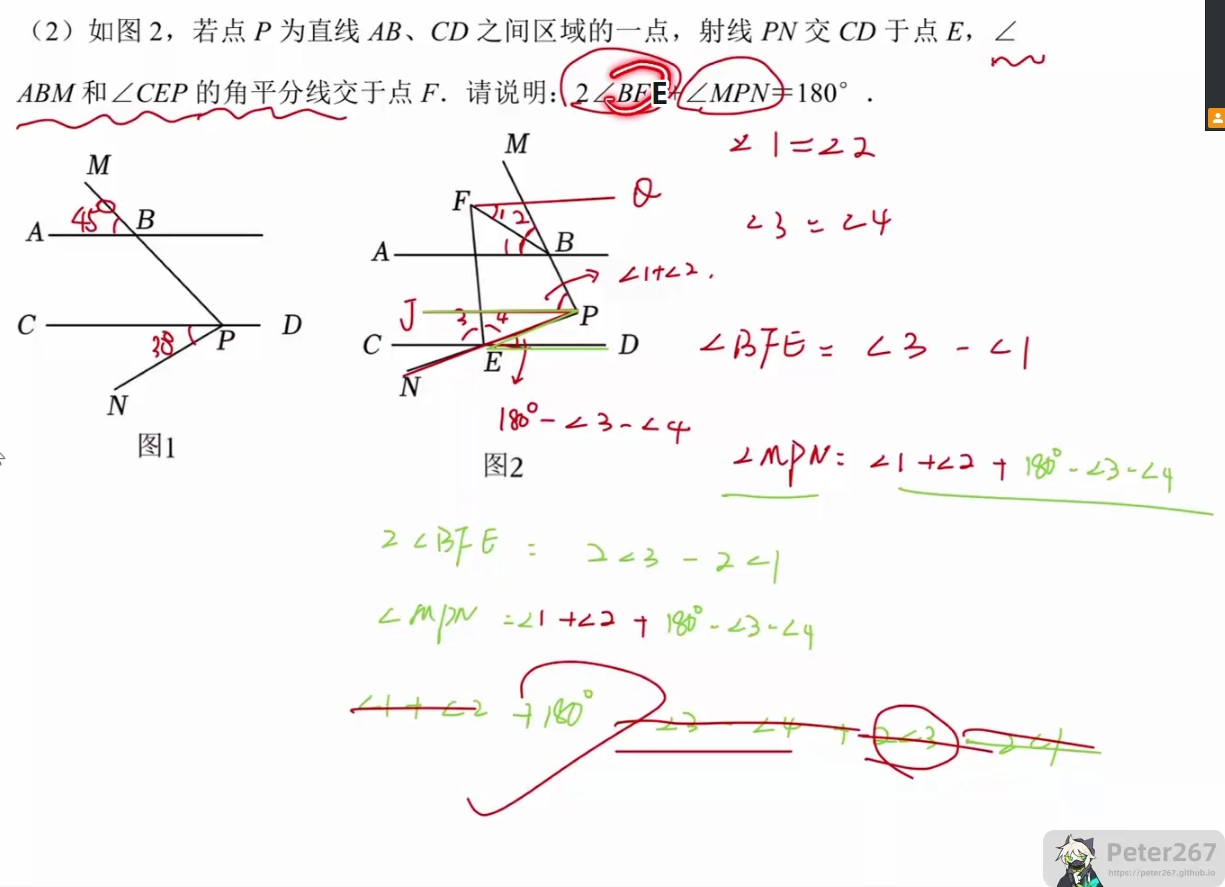 (2)如图 2,若点 P 为直线 AB、CD 之间区域的一点,射线 PN 交 CD 于点 E,∠
ABM 和∠CEP 的角平分线交于点 F.请说明:2∠BFE+∠MPN=180°.
M
45°
A
B
C
D
38
P
N
图1
M
F
Q
1
2
A
1
B
∠1+∠2.
J
3
4
P
C
D
E
N
180°-∠3-∠4
图2
∠1=∠2
∠3=∠4
∠BFE=∠3-∠1
∠MPN=∠1+∠2+180°-∠3-∠4
2∠BFE = 2∠3-2∠1
∠MPN =∠1+∠2+180°-∠3-∠4
∠1+∠2+180°-∠3-∠4+2∠3-2∠1
Peter267
https://peter267.github.io